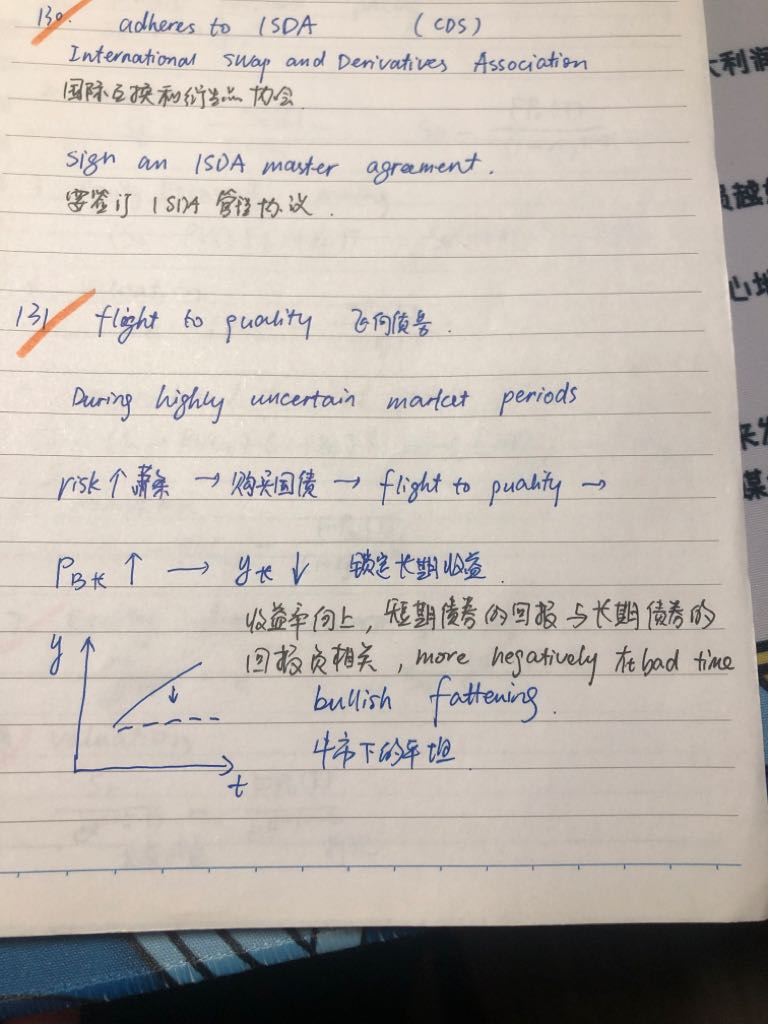 130. adheres to ISDA (CDS)
International Swap and Derivatives Association
国际互换和衍生品协会
sign an ISDA master agreement.
要签订 ISDA 管理协议.
131 flight to quality 飞向债券.
During highly uncertain market periods
risk↑萧条 → 购买国债 → flight to quality →
PB长 ↑ → y长 ↓ 锁定长期收益
收益率向上, 短期债券的回报与长期债券的
回报负相关, more negatively 在bad time
y
bullish fattening.
牛市下的平坦
t
大利润
员越
心地
来发
谋